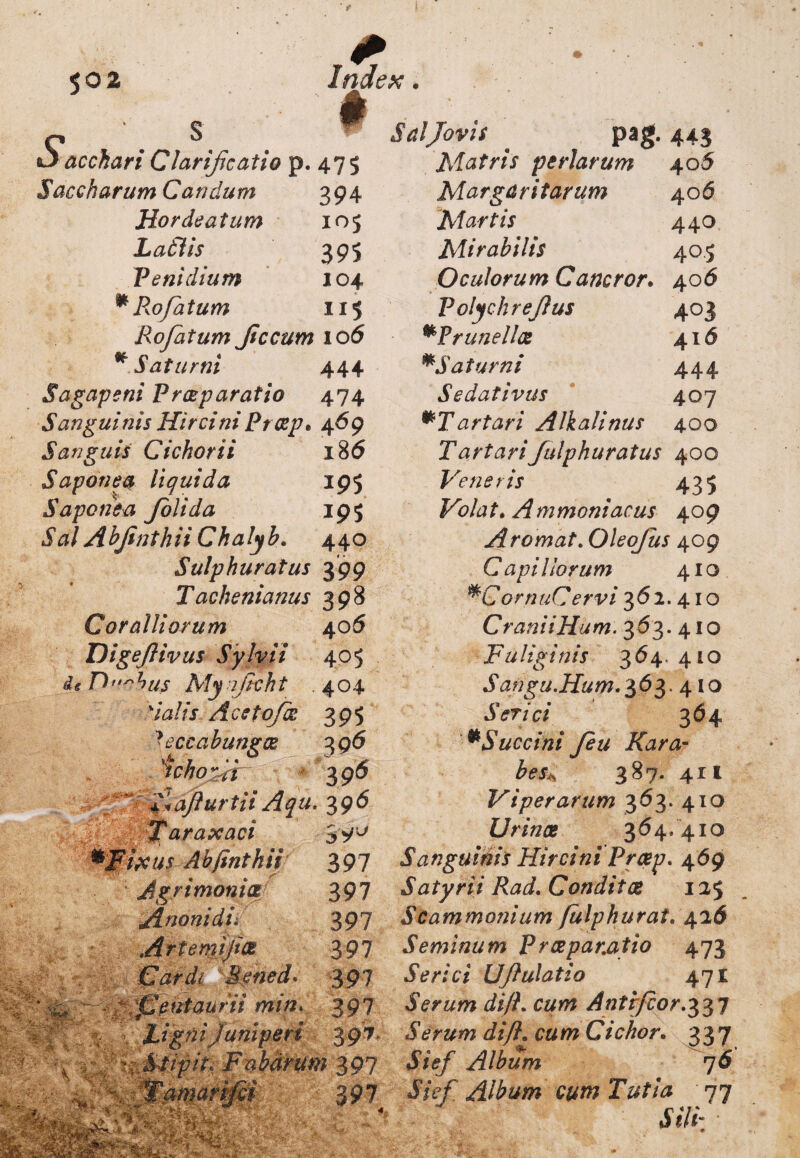 502 Index.
S
Sacchari Clarificatio p. 475
Saccharum Candum 394
Hordeatum 105
Lactis 395
Penidium 104
*Roſatum 115
Roſatum ſiccum 106
* Saturni 444
Sagapeni Præparatio 474
Sanguinis Hircini Præp. 469
Sanguis Cichorii 186
Saponea liquida 195
Saponea ſolida 195
Sal Abſinthii Chalyb. 440
Sulphuratus 399
Tachenianus 398
Coralliorum 406
Digeſtivus Sylvii 405
de Duobus Mynſicht 404
Acetoſæ 395
396
396
Naſturtii Aqu. 396
Taraxaci
*Fixus Abſinthii 397
Agrimoniæ 397
Anonidis 397
Artemiſiæ 397
Cardi Bened. 397
Centaurii min. 397
Ligni Juniperi 397
Stipit. Fabarum 397
Tamariſci 397
Sal Jovis pag. 443
Matris perlarum 405
Margaritarum 406
Martis 440
Mirabilis 405
Oculorum Cancror. 406
Polychreſtus 403
*Prunellæ 416
*Saturni 444
Sedativus 407
*Tartari Alkalinus 400
Tartari ſulphuratus 400
Veneris 435
Volat. Ammoniacus 409
Aromat. Oleoſus 409
Capillorum 410
*CornuCervi 362. 410
CraniiHum. 363. 410
Fuliginis 364. 410
Sangu.Hum. 363. 410
Serici 364
*Succini ſeu Kara-
bes. 387. 411
Viperarum 363. 410
Urinæ 364. 410
Sanguinis Hircini Præp. 469
Satyrii Rad. Conditæ 125
Scammonium ſulphurat. 426
Seminum Præparatio 473
Serici Uſtulatio 471
Serum diſt. cum Antiſcor. 337
Serum diſt. cum Cichor. 337
Sief Album 76
Sief Album cum Tutia 77
Sili-